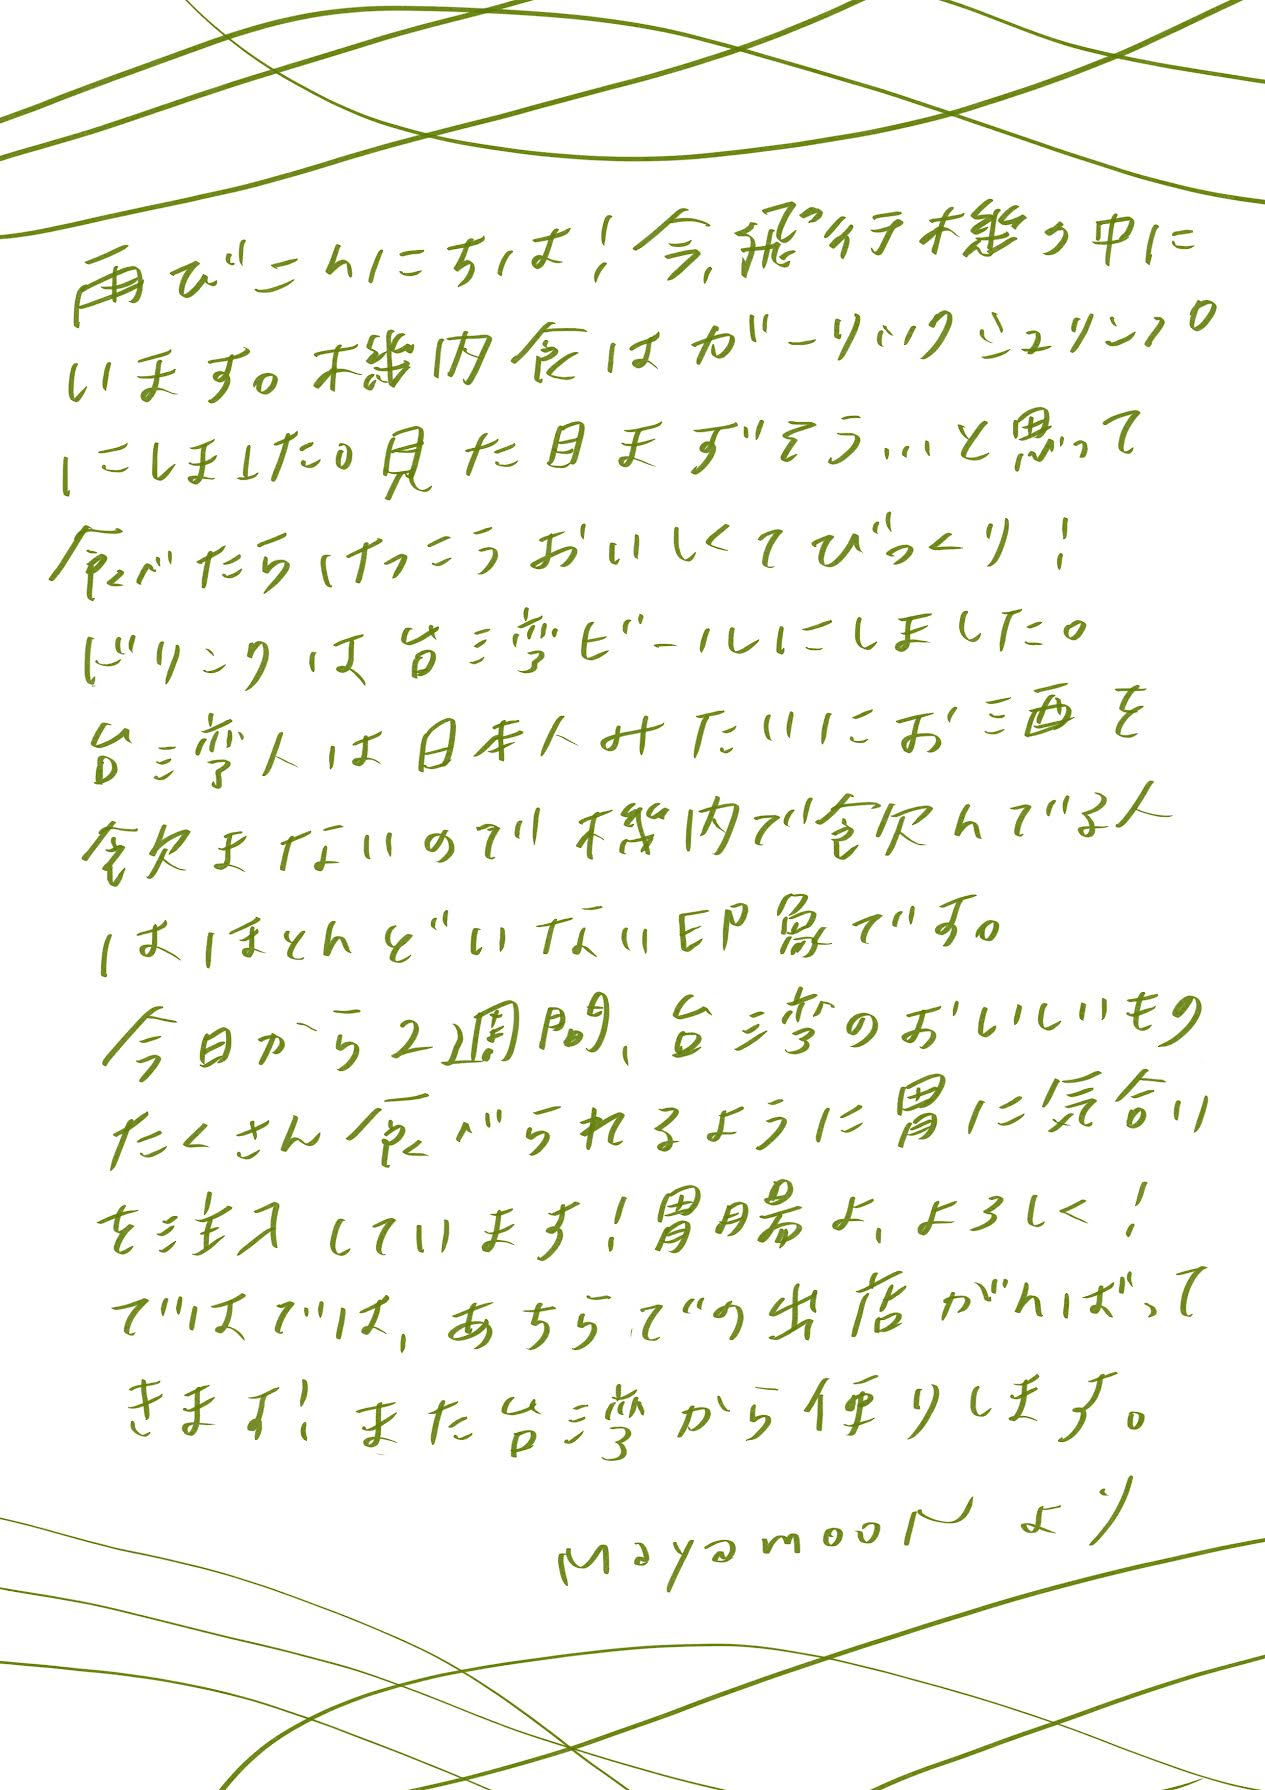 再びこんにちは！今、飛行機の中に
います。機内食はガーリックシュリンプ
にしました。見た目まずそう...と思って
食べたらけっこうおいしくてびっくり！
ドリンクは台湾ビールにしました。
台湾人は日本人みたいにお酒を
飲まないので機内で飲んでる人
はほとんどいない印象です。
今日から2週間、台湾のおいしいもの
たくさん食べられるように胃に気合い
を注入しています！胃腸よ、よろしく！
ではでは、あちらでの出店がんばって
きます！また台湾から便りします。
MayamooNより